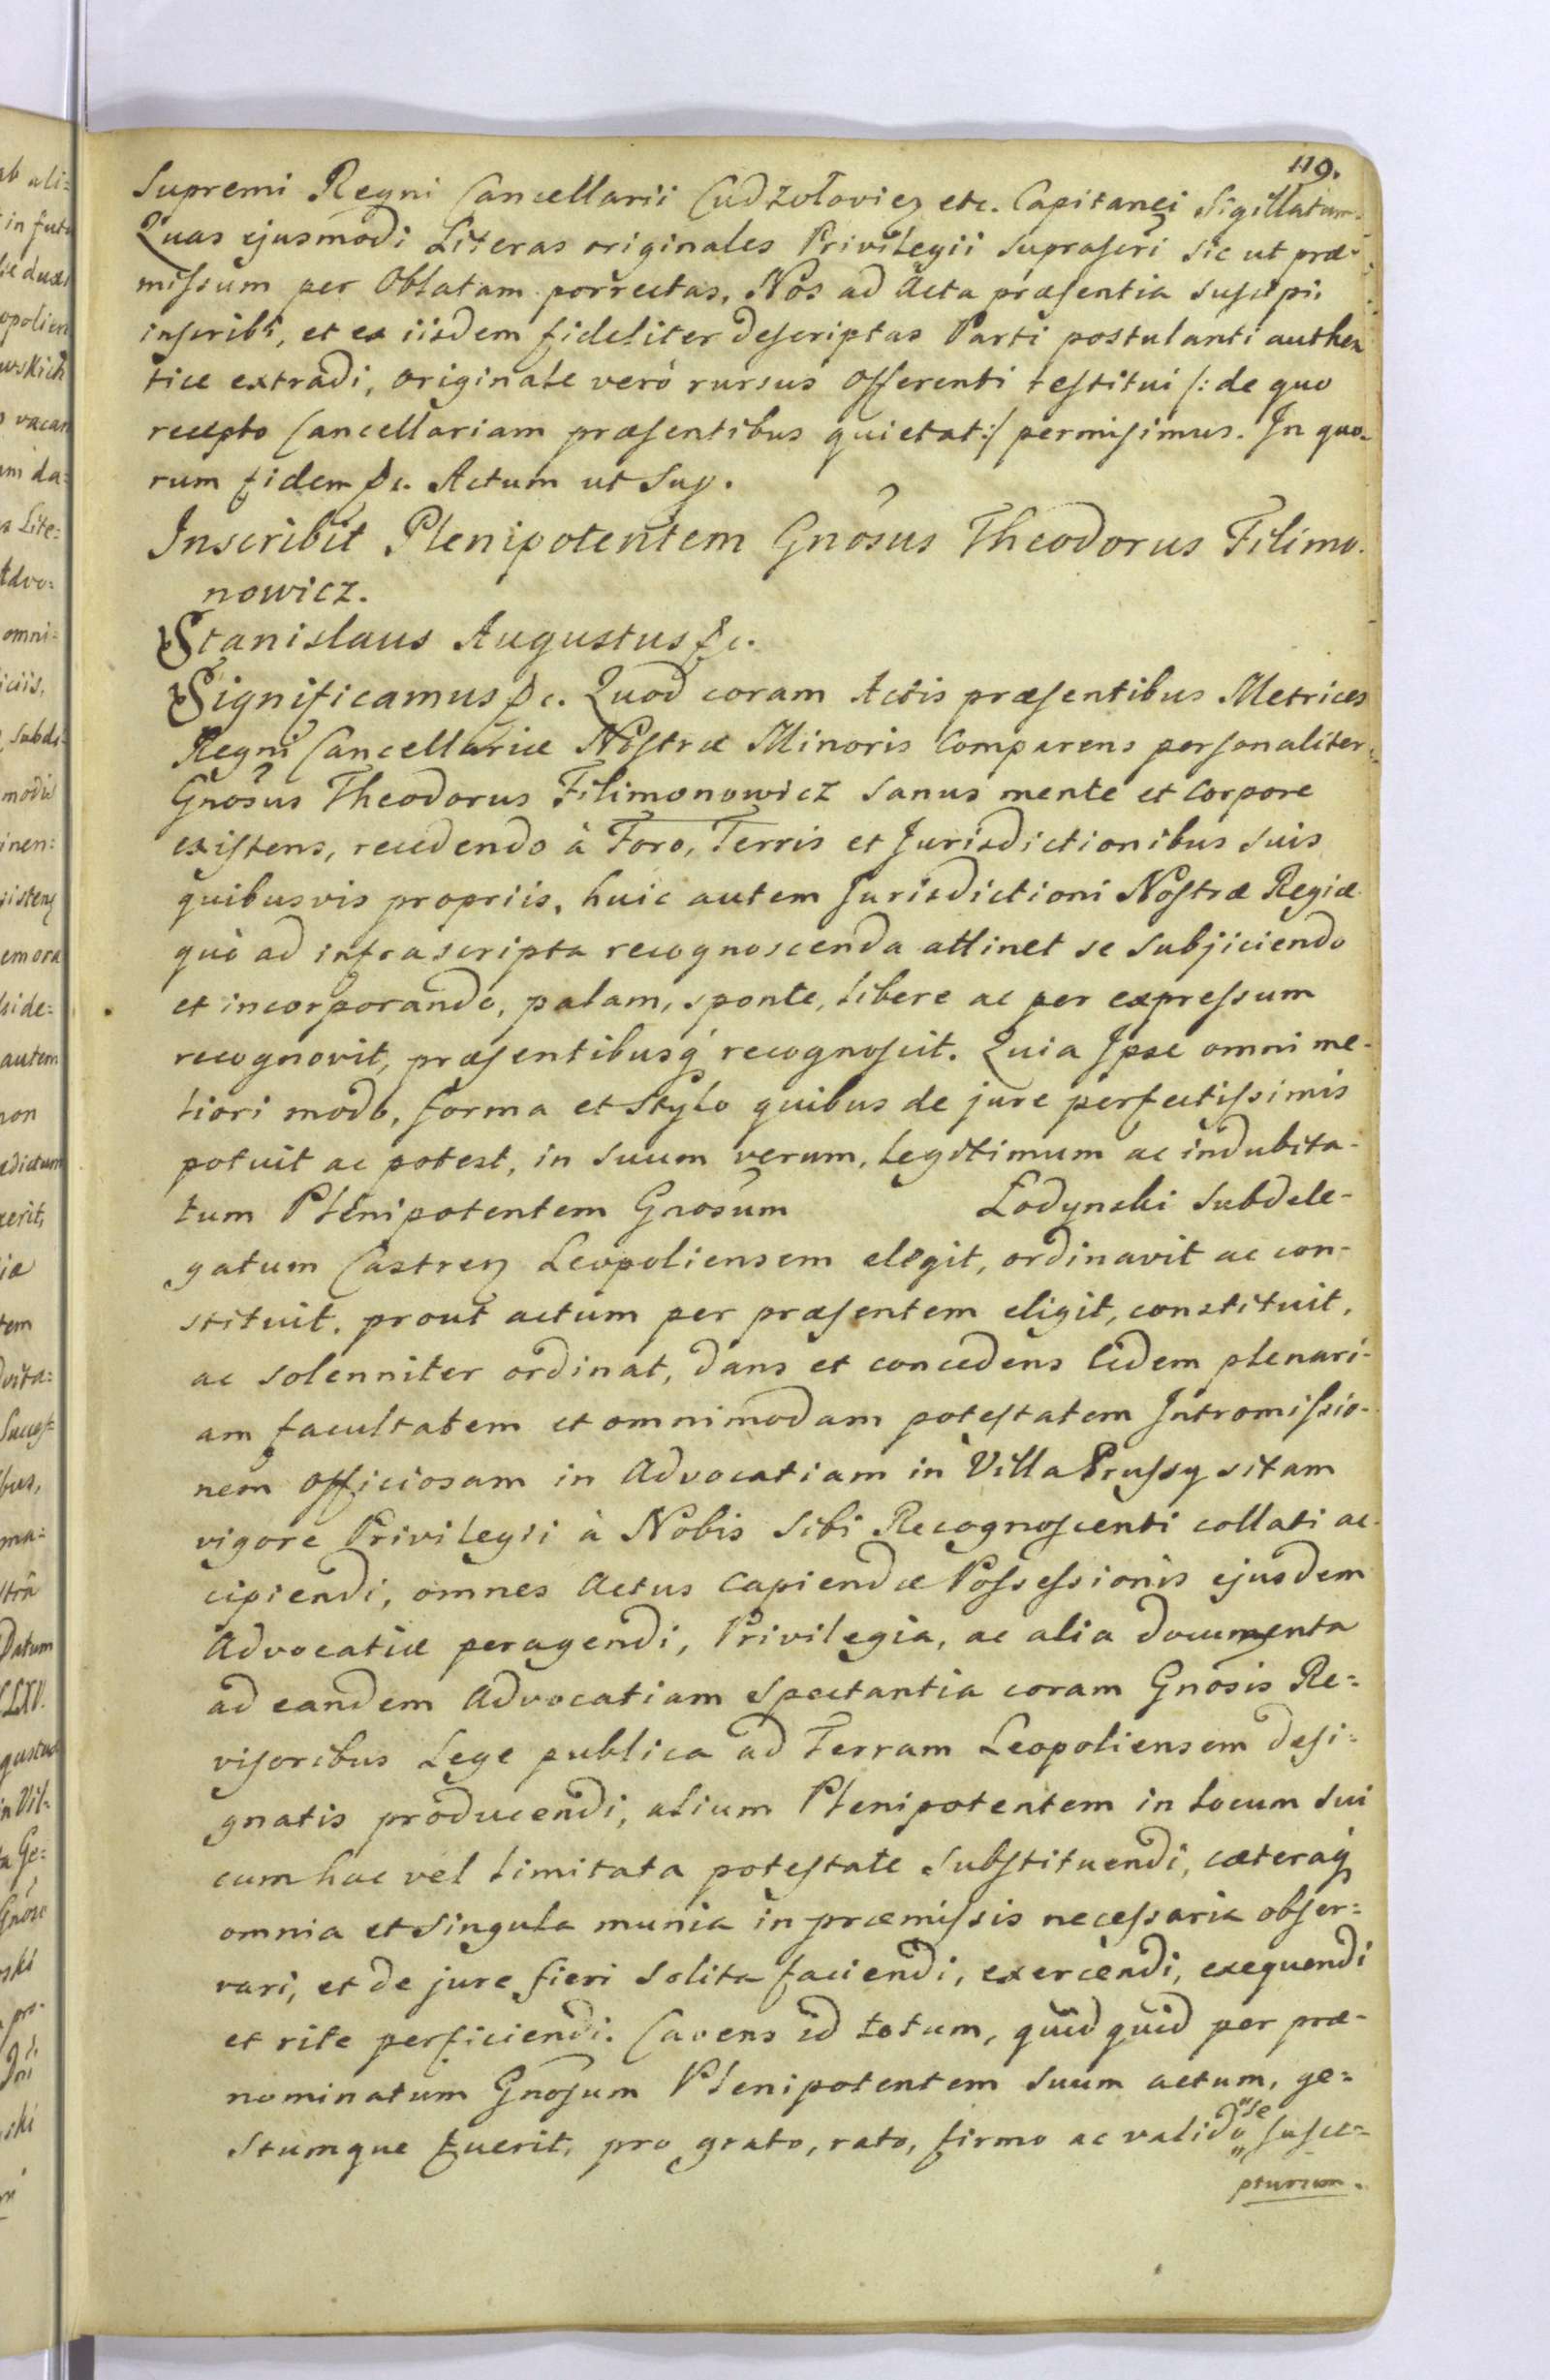 119.
Supremi Regni Cancellarii Cudzołovien etc. Capitanei Sigillatum.
Quas ejusmodi Literas originales Privilegii suprascri sic ut præ-
missum per Oblatam porrectas, Nos ad Acta præsentia suscipi,
inscribi, et ex iisdem fideliter descriptas Parti postulanti authen
tice extradi, originale verò rursus Offerenti restitui /: de quo
recepto Cancellariam præsentibus quietat :/ permisimus. In quo-
rum fidem &c. Actum ut Sup.
Inscribit Plenipotentem Gnõsus Theodorus Filimo-
nowicz.
Stanislaus Augustus &c.
Significamus &c. Quod coram Actis præsentibus Metrices
Regni Cancellariæ Nostræ Minoris Comparens personaliter
Gnõsus Theodorus Filimonowicz sanus mente et corpore
existens, recedendo à Foro, Terris et Jurisdictionibus suis
quibusvis propriis, huic autem Jurisdictioni Nostræ Regiæ
quò ad infrascripta recognoscenda attinet se subjiciendo
et incorporando, palam, sponte, libere ac per expressum
recognovit, præsentibusq recognoscit. Quia Ipse omni me-
liori modo, forma et Stylo quibus de jure perfectissimis
potuit ac potest, in suum verum, legitimum ac indubita-
tum Plenipotentem Gnõsum Łodynski Subdele-
gatum Castren Leopoliensem elegit, ordinavit ac con-
stituit, prout actum per præsentem eligit, constituit,
ac solenniter ordinat, dans et concedens Eidem plenari-
am facultatem et omnimodam potestatem Intromissio-
nem officiosam in Advocatiam in Villa Prussy sitam
vigore Privilegii à Nobis Sibi Recognoscenti collati ac-
cipiendi, omnes Actus Capiendæ Possessionis ejusdem
Advocatiæ peragendi, Privilegia, ac alia documenta
ad eandem Advocatiam spectantia coram Gnõsis Re=
visoribus Lege publica ad Terram Leopoliensem desi=
gnatis producendi, alium Plenipotentem in locum sui
cum hac vel limitata potestate substituendi, cæteraq
omnia et singula munia in præmissis necessaria obser=
vari, et de jure fieri solita faciendi, exercendi, exequendi
et rite perficiendi. Cavens id totum, quidquid per præ-
nominatum Gnõsum Plenipotentem suum actum, ge=
stumque fuerit, pro grato, rato, firmo ac valido se susce=
pturum.